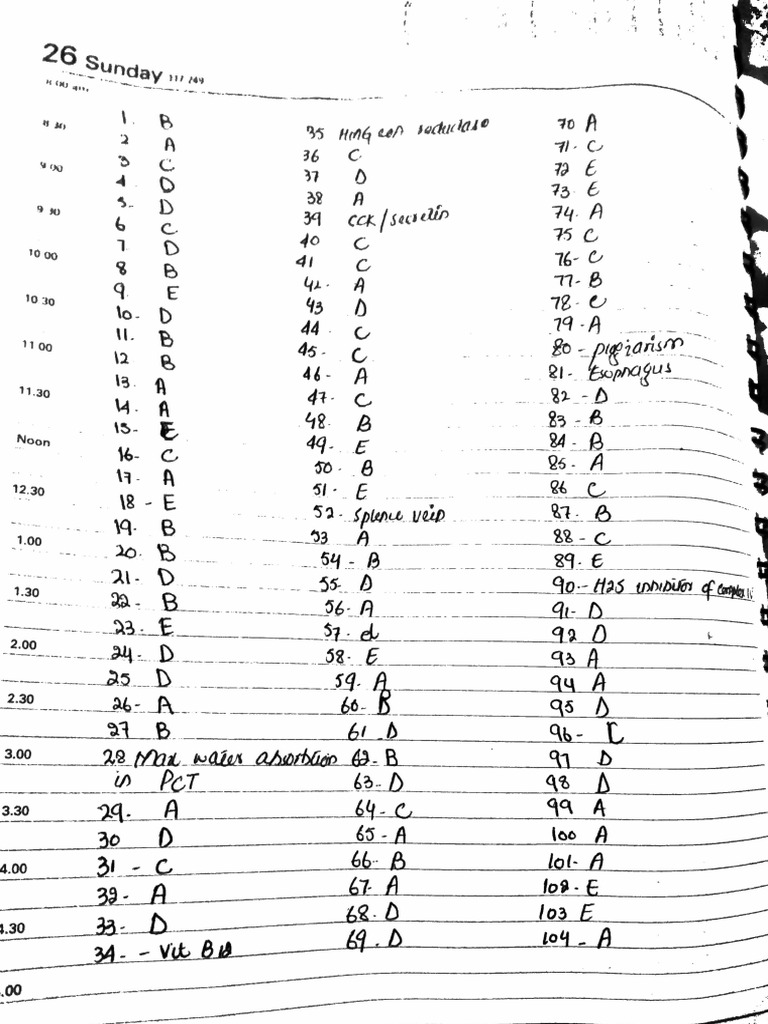 26 Sunday 117/249
8 30
9 00
9 30
10 00
10 30
11 00
11.30
Noon
12.30
1.00
1.30
2.00
2.30
3.00
3.30
4.00
4.30
.00
1. B
2 A
3 C
4. D
5. D
6 C
7. D
8 B
9. E
10- D
11. B
12 B
13. A
14. A
15- E
16- C
17- A
18 - E
19. B
20. B
21- D
22- B
23- E
24- D
25 D
26- A
27 B
28 Max water absorbtion
in PCT
29- A
30 D
31 - C
32- A
33- D
34- - Vit B12
35 HMG coA reductase
36 C
37 D
38 A
39 CCK/secretin
40 C
41 C
42- A
43 D
44 C
45- C
46- A
47- C
48- B
49- E
50- B
51- E
52- Splenic vein
53 A
54- B
55- D
56- A
57- d
58- E
59- A
60- B
61 D
62- B
63- D
64- C
65- A
66- B
67- A
68- D
69- D
70 A
71- C
72 E
73 E
74- A
75 C
76- C
77- B
78- C
79- A
80 - pigiarism
81- Esophagus
82 - D
83 - B
84- B
85- A
86 C
87- B
88 - C
89- E
90-- H2S inhibitor of complex IV
91- D
92 D
93 A
94 A
95 D
96- C
97 D
98 D
99 A
100 A
101- A
102- E
103 E
104 - A